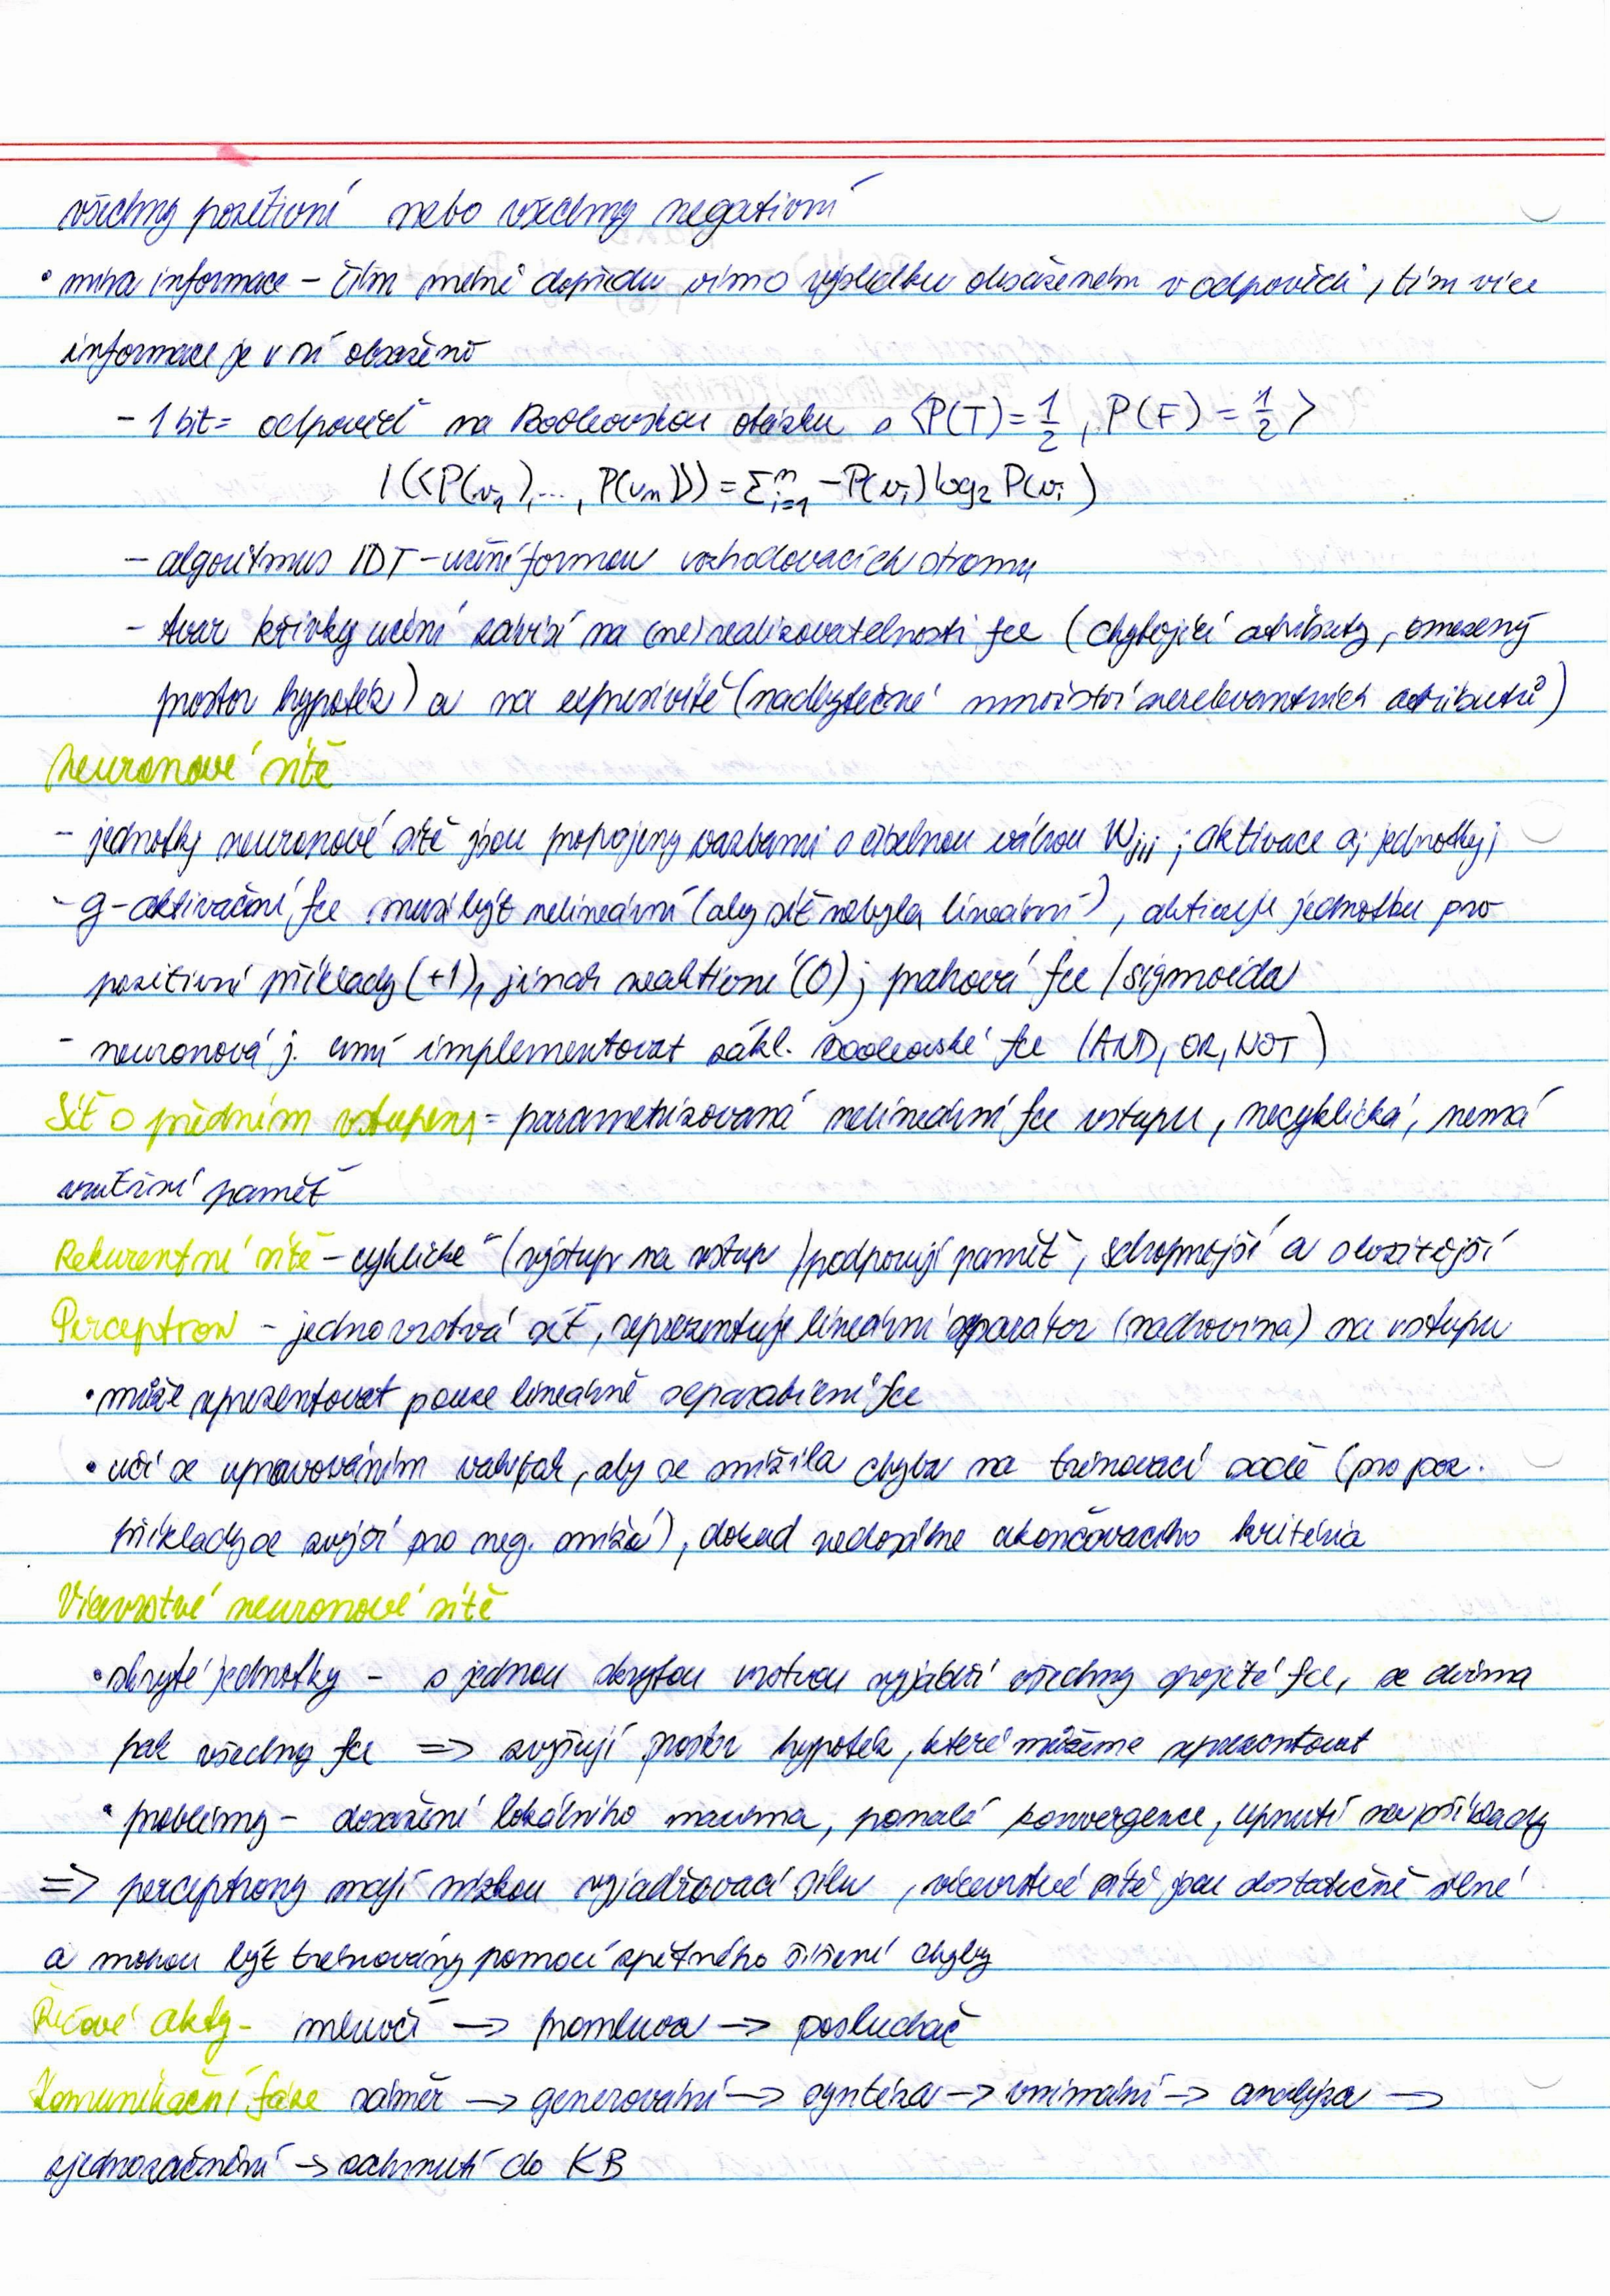 všechny pozitivní nebo všechny negativní
• míra informace – čím méně dopředu vím o výsledku obsaženém v odpovědi, tím více
informace je v ní obsaženo
– 1 bit = odpověď na Booleovskou otázku s <P(T) = 1/2, P(F) = 1/2>
I(<P(v₁),..., P(vₙ)>) = Σⁿᵢ₌₁ –P(vᵢ) log₂ P(vᵢ)
– algoritmus IDT – učení formou rozhodovacích stromů
– tvar křivky učení závisí na (ne)realizovatelnosti fce (chybějící atributy, omezený
prostor hypotéz) a na expresivitě (nadbytečné množství nerelevantních atributů)
Neuronové sítě
– jednotky neuronové sítě jsou propojeny vazbami s číselnou váhou Wj,i ; aktivace aj jednotky j
– g – aktivační fce musí být nelineární (aby síť nebyla lineární), aktivuje jednotku pro
pozitivní příklady (+1), jinak neaktivní (0); prahová fce / sigmoida
– neuronová j. umí implementovat zákl. Booleovské fce (AND, OR, NOT)
Síť s předním vstupem = parametrizovaná nelineární fce vstupu, necyklická, nemá
vnitřní paměť
Rekurentní sítě – cyklické (výstup na vstup) podporují paměť, schopnější a složitější
Perceptron – jednovrstvá síť, reprezentuje lineární separátor (nadrovina) na vstupu
• může reprezentovat pouze lineárně separabilní fce
• učí se upravováním vah tak, aby se snížila chyba na trénovací sadě (pro poz.
příklady se zvýší pro neg. sníží), dokud nedosáhne ukončovacího kritéria
Vícevrstvé neuronové sítě
• skryté jednotky – s jednou skrytou vrstvou vyjádří všechny spojité fce, se dvěma
pak všechny fce => zvyšují prostor hypotéz, které můžeme reprezentovat
• problémy – dosažení lokálního maxima, pomalá konvergence, upnutí na příklady
=> perceptrony mají nízkou vyjadřovací sílu, vícevrstvé sítě jsou dostatečně silné
a mohou být trénovány pomocí zpětného šíření chyby
Řečové akty – mluvčí –> promluva –> posluchač
Komunikační fáze záměr –> generování –> syntéza –> vnímání –> analýza –>
zjednoznačnění –> zahrnutí do KB